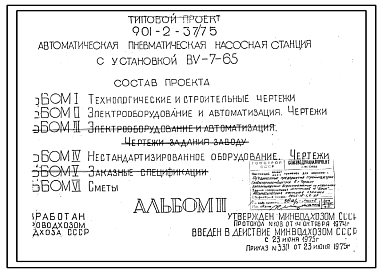 ТИПОВОЙ ПРОЕКТ
901-2-37/75
АВТОМАТИЧЕСКАЯ ПНЕВМАТИЧЕСКАЯ НАСОСНАЯ СТАНЦИЯ
С УСТАНОВКОЙ ВУ-7-65
СОСТАВ ПРОЕКТА
БОМ I ТЕХНОЛОГИЧЕСКИЕ И СТРОИТЕЛЬНЫЕ ЧЕРТЕЖИ
БОМ II ЭЛЕКТРООБОРУДОВАНИЕ И АВТОМАТИЗАЦИЯ. ЧЕРТЕЖИ
БОМ III ЭЛЕКТРООБОРУДОВАНИЕ И АВТОМАТИЗАЦИЯ.
ЧЕРТЕЖИ ЗАДАНИЯ ЗАВОДУ
БОМ IV НЕСТАНДАРТИЗИРОВАННОЕ ОБОРУДОВАНИЕ. ЧЕРТЕЖИ
БОМ V ЗАКАЗНЫЕ СПЕЦИФИКАЦИИ
БОМ VI СМЕТЫ
АЛЬБОМ II
РАБОТАН
РОВОДХОЗОМ
ДХОЗА СССР
УТВЕРЖДЕН МИНВОДХОЗОМ СССР
ПРОТОКОЛ №1103 ОТ 14 ОКТЯБРЯ 1974Г
ВВЕДЕН В ДЕЙСТВИЕ МИНВОДХОЗОМ СССР
С 23 ИЮНЯ 1975Г
ПРИКАЗ №331 ОТ 23 ИЮНЯ 1975Г